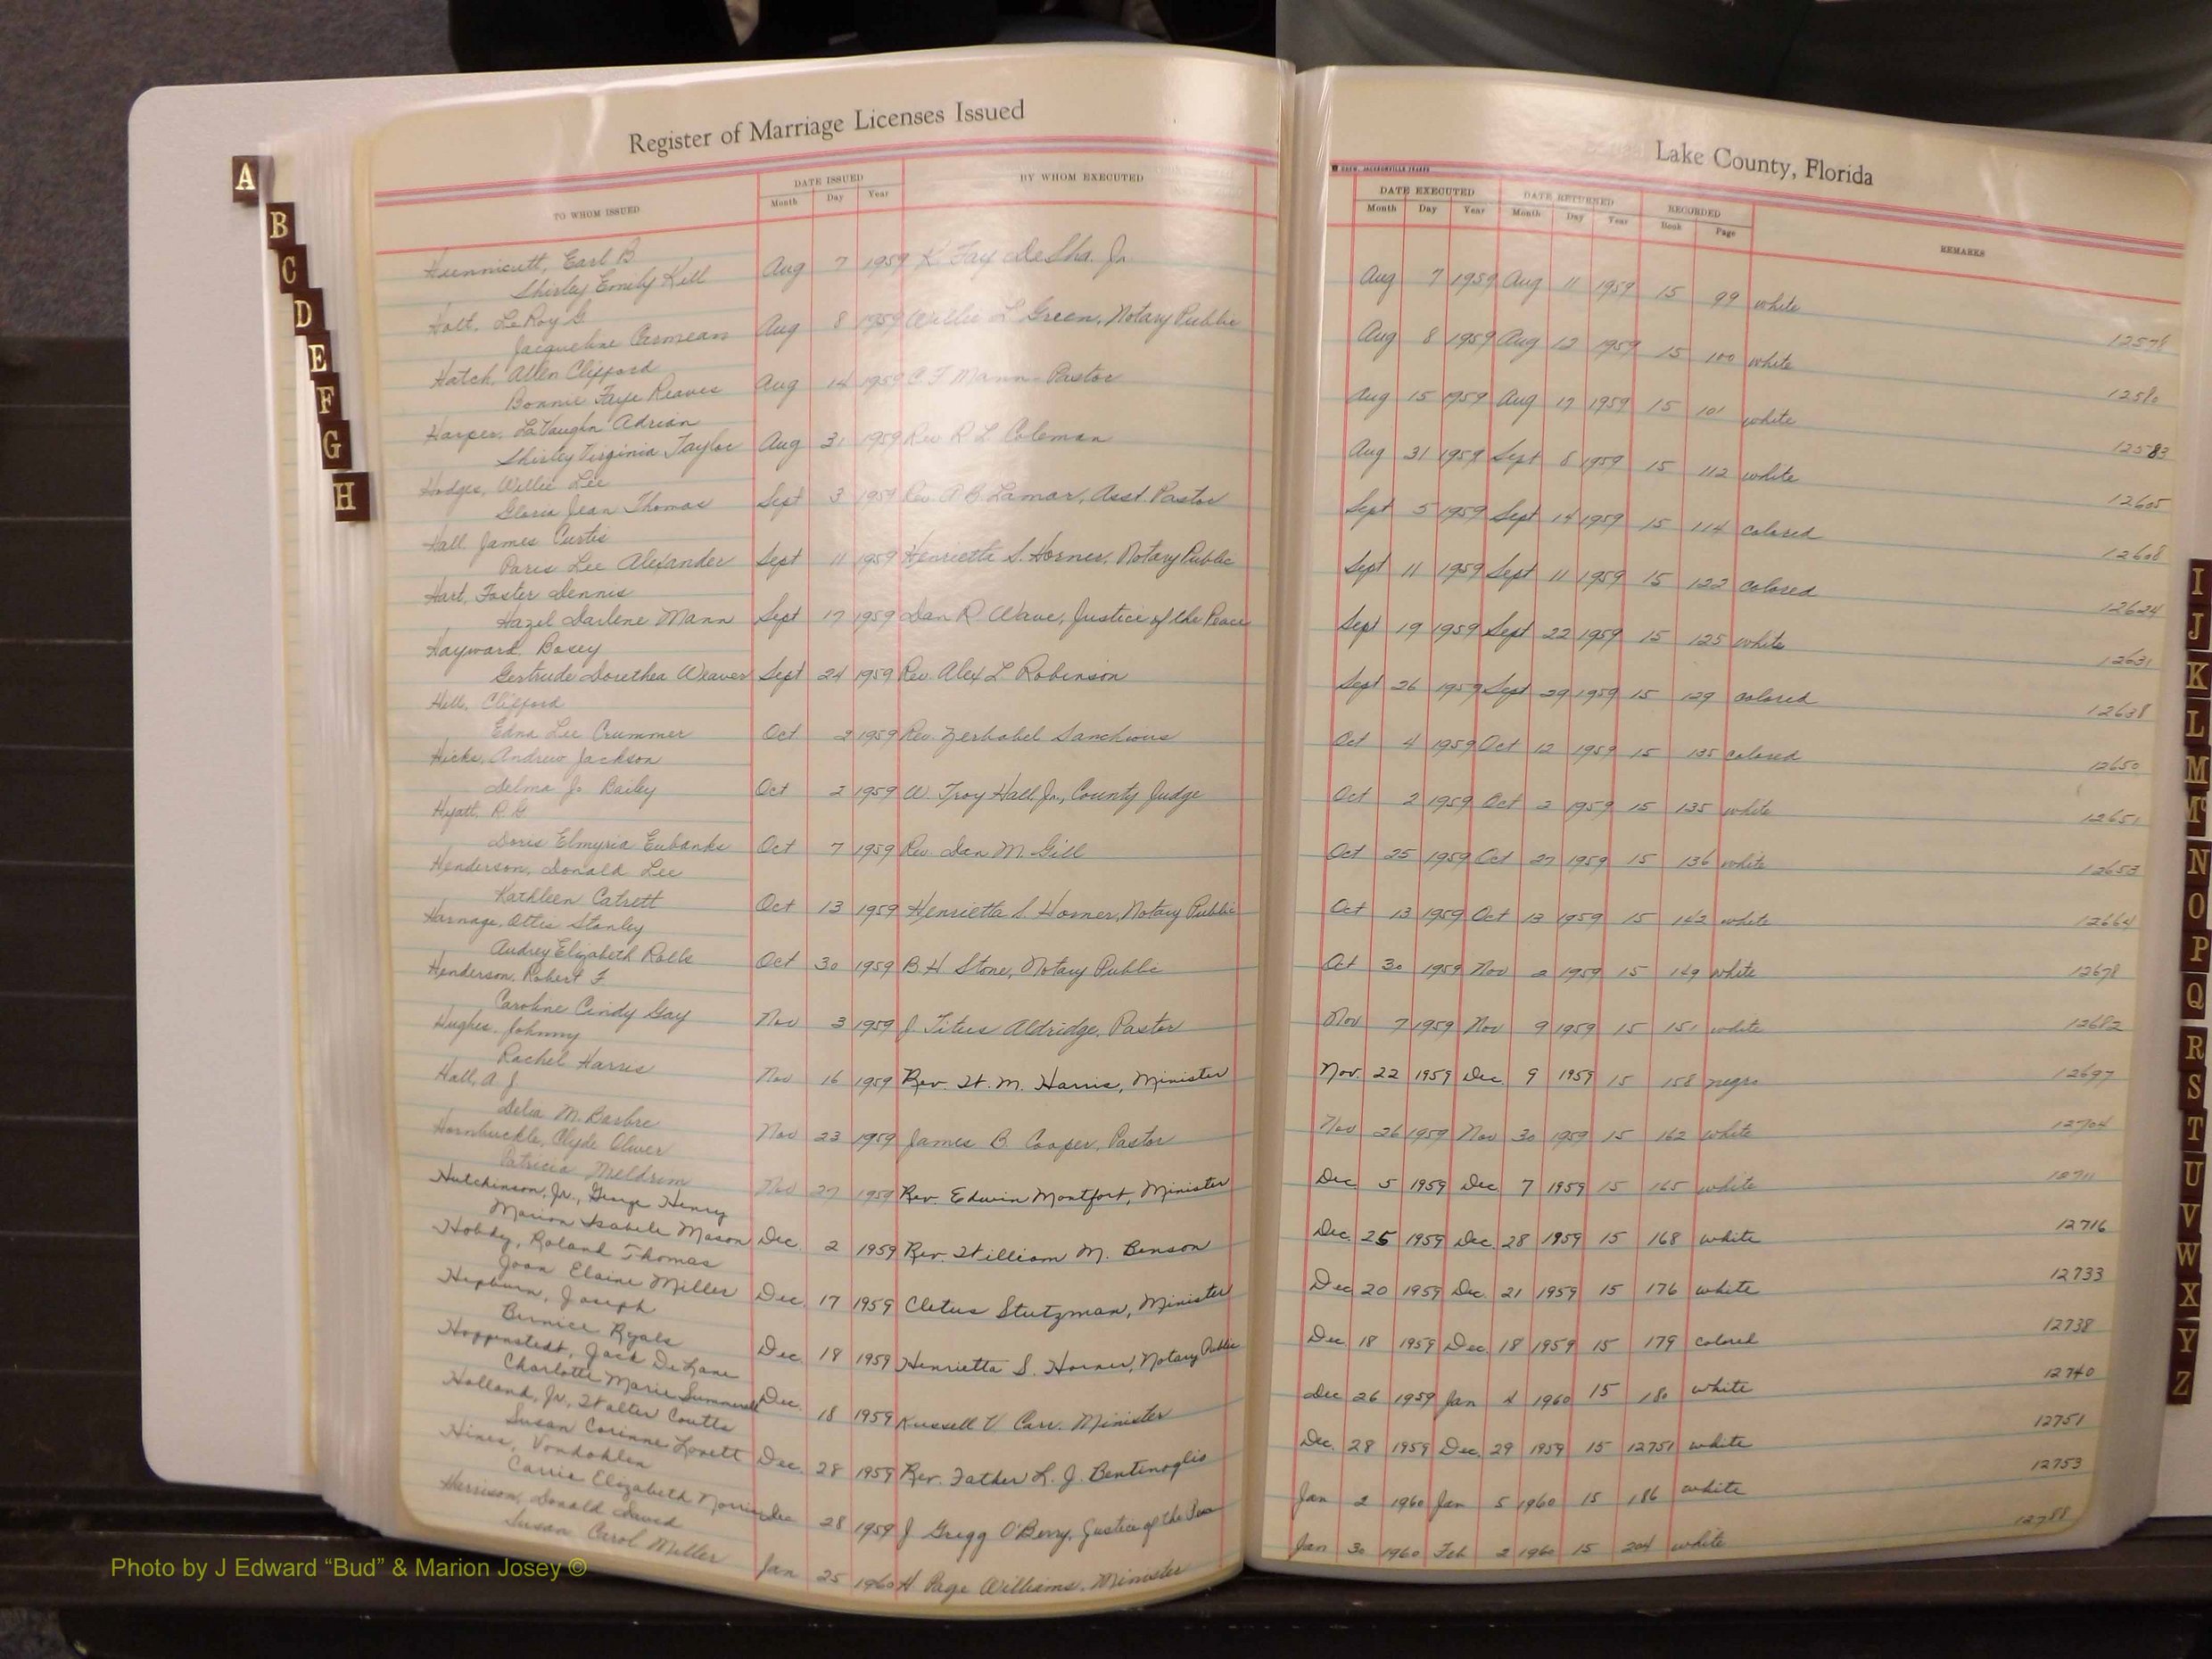 Register of Marriage Licenses Issued
Lake County, Florida
TO WHOM ISSUED DATE ISSUED BY WHOM EXECUTED DATE EXECUTED DATE RETURNED RECORDED REMARKS
Month Day Year Month Day Year Month Day Year Book Page
Hunnicutt, Earl B
Shirley Emily Hill Aug 7 1959 K. Fay DeSha. Jr. Aug 7 1959 Aug 11 1959 15 99 white
Holt, LeRoy G
Jacqueline Carmean Aug 8 1959 Willie L Green, Notary Public Aug 8 1959 Aug 12 1959 15 100 white 12580
Hatch, Allen Clifford
Bonnie Faye Reaves Aug 14 1959 C F Mann Pastor Aug 15 1959 Aug 17 1959 15 101 white 12583
Harper, LaVaughn Adrian
Shirley Virginia Taylor Aug 31 1959 Rev R L Coleman Aug 31 1959 Sept 8 1959 15 112 white 12605
Hodges, Willie Lee
Gloria Jean Thomas Sept 3 1959 Rev. A B. Lamar, Asst. Pastor Sept 5 1959 Sept 14 1959 15 114 colored 12608
Hall James Curtis
Paris Lee Alexander Sept 11 1959 Henrietta S. Horner, Notary Public Sept 11 1959 Sept 11 1959 15 122 colored 12624
Hart, Foster Dennis
Hazel Darlene Mann Sept 17 1959 Dan R Wave, Justice of the Peace Sept 19 1959 Sept 22 1959 15 125 white 12631
Hayward. Bosey
Gertrude Dorethea Weaver Sept 24 1959 Rev. Alex L Robinson Sept 26 1959 Sept 29 1959 15 129 colored 12638
Hill, Clifford
Edna Lee Crummer Oct 2 1959 Rev. Zerbabel Sanchious Oct 4 1959 Oct 12 1959 15 135 colored 12650
Hicks, Andrew Jackson
Delma J. Bailey Oct 2 1959 W. Troy Hall, Jr., County Judge Oct 2 1959 Oct 2 1959 15 135 white 12651
Hyatt, R. G.
Doris Elmyria Eubanks Oct 7 1959 Rev. Dan M. Gill Oct 25 1959 Oct 27 1959 15 136 white 12653
Henderson, Donald Lee
Kathleen Catrett Oct 13 1959 Henrietta S. Horner, Notary Public Oct 13 1959 Oct 13 1959 15 142 white 12664
Harnage, Ottis Stanley
Audrey Elizabeth Rolls Oct 30 1959 B. H Stone, Notary Public Oct 30 1959 Nov 2 1959 15 149 white 12678
Henderson, Robert F
Caroline Cindy Gay Nov 3 1959 J Titus Aldridge, Pastor Nov 7 1959 Nov 9 1959 15 151 white 12682
Hughes, Johnny
Rachel Harris Nov 16 1959 Rev. W. M. Harris, Minister Nov. 22 1959 Dec. 9 1959 15 158 negro 12697
Hall, A J
Delia M. Barbre Nov 23 1959 James B Cooper, Pastor Nov 26 1959 Nov 30 1959 15 162 white 12704
Hornbuckle, Clyde Oliver
Patricia Meldrim Nov 27 1959 Rev. Edwin Montfort, Minister Dec. 5 1959 Dec. 7 1959 15 165 white 12711
Hutchinson, Jr., George Henry
Marion Isabele Mason Dec. 2 1959 Rev. William M. Benson Dec. 25 1959 Dec. 28 1959 15 168 white 12716
Hobdy, Roland Thomas
Joan Elaine Miller Dec. 17 1959 Cletus Stutzman, Minister Dec 20 1959 Dec. 21 1959 15 176 white 12733
Hepburn, Joseph
Bernice Ryals Dec. 18 1959 Henrietta S. Horner, Notary Public Dec. 18 1959 Dec. 18 1959 15 179 colored 12738
Hoppenstedt, Jack DeLane
Charlotte Marie Summerall Dec. 18 1959 Russell V. Carr. Minister Dec 26 1959 Jan 4 1960 15 180 white 12740
Holland, Jr., Walter Coutts
Susan Corinne Lovett Dec. 28 1959 Rev. Father L. J. Bentinoglio Dec. 28 1959 Dec. 29 1959 15 12751 white 12751
Hines, Vondohlen
Carrie Elizabeth Morris Dec 28 1959 J Gregg O'Berry, Justice of the Peace Jan 2 1960 Jan 5 1960 15 186 white 12753
Harrison, Donald David
Susan Carol Miller Jan 25 1960 H Page Williams, Minister Jan 30 1960 Feb 2 1960 15 204 white 12788
A
B
C
D
E
F
G
H
I
J
K
L
M
Mc
N
O
P
Q
R
S
T
U
V
W
X
Y
Z
Photo by J Edward “Bud” & Marion Josey ©